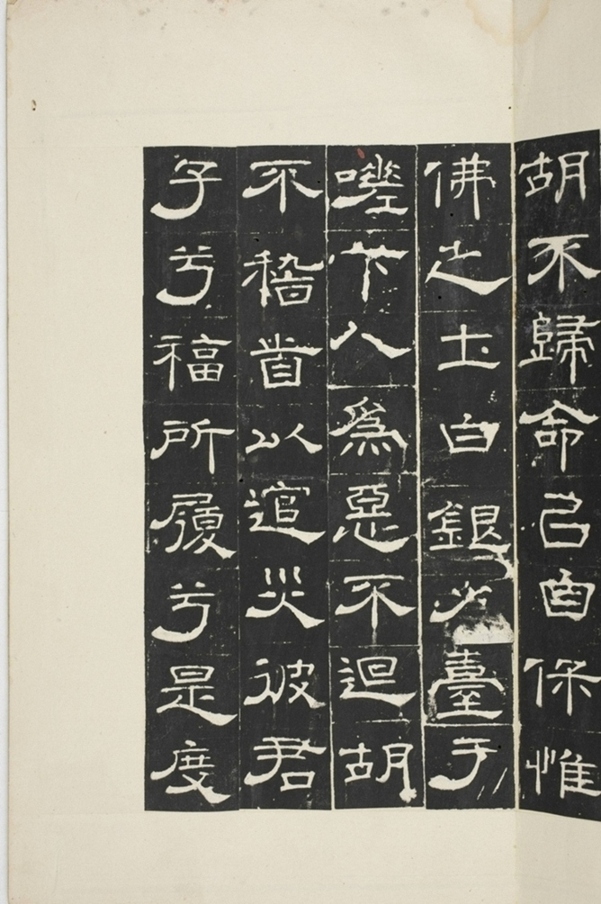 胡不歸命以自保惟
佛之土白銀為臺于
嗟下人為惡不迴胡
不稽首以逭災彼君
子兮福所履兮是度